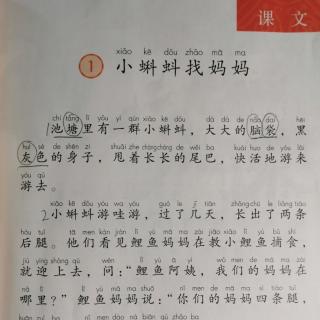 课文
xiǎo kē dǒu zhǎo mā ma
1 小蝌蚪找妈妈
chí táng lǐ yǒu yì qún xiǎo kē dǒu dà dà de nǎo dai hēi
1池塘里有一群小蝌蚪，大大的脑袋，黑
huī sè de shēn zi shuǎi zhe cháng cháng de wěi ba kuài huo de yóu lái
灰色的身子，甩着长长的尾巴，快活地游来
yóu qù
游去。
xiǎo kē dǒu yóu wa yóu guò le jǐ tiān zhǎng chū le liǎng tiáo
2小蝌蚪游哇游，过了几天，长出了两条
hòu tuǐ tā men kàn jiàn lǐ yú mā ma zài jiāo xiǎo lǐ yú bǔ shí
后腿。他们看见鲤鱼妈妈在教小鲤鱼捕食，
jiù yíng shàng qù wèn lǐ yú ā yí wǒ men de mā ma zài
就迎上去，问：“鲤鱼阿姨，我们的妈妈在
nǎ lǐ lǐ yú mā ma shuō nǐ men de mā ma sì tiáo tuǐ
哪里？”鲤鱼妈妈说：“你们的妈妈四条腿，